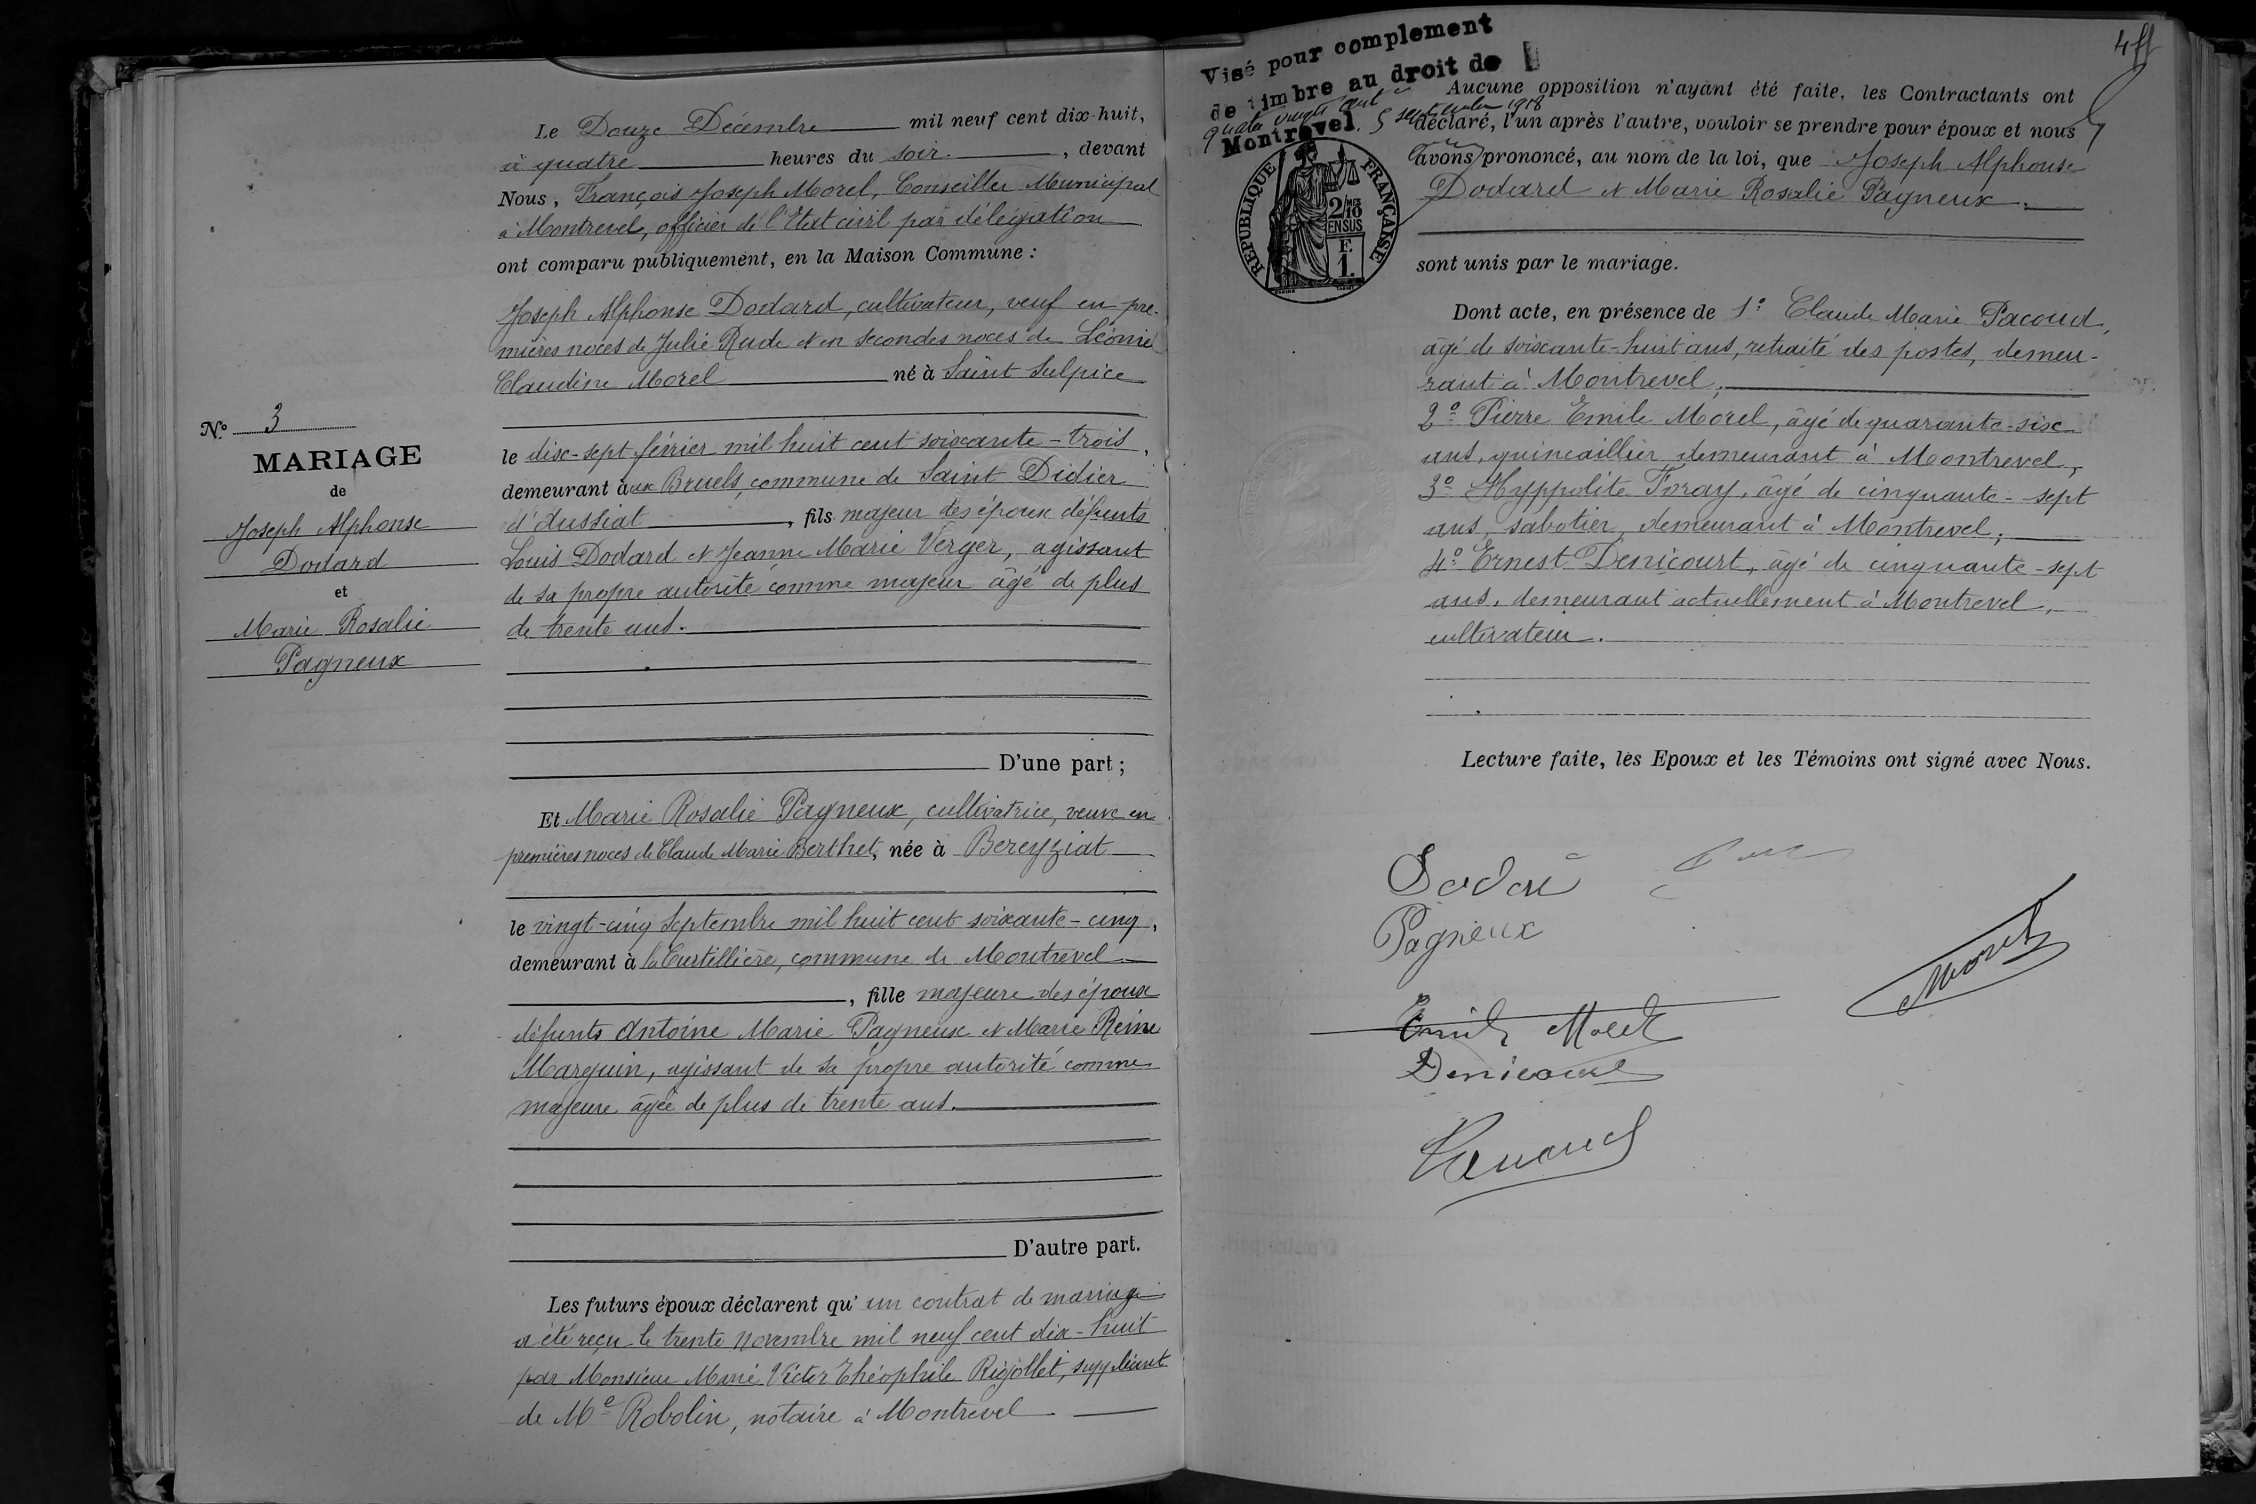 Nº 3
MARIAGE
de
Joseph Alphonse
Dodard
et
Marie Rosalie
Pagneux
Le Douze Décembre mil neuf cent dix-huit,
à quatre heures du soir, devant
Nous, François Joseph Morel, Conseiller Municipal
à Montrevel, officier de l'Etat civil par délégation
ont comparu publiquement, en la Maison Commune :
Joseph Alphonse Dodard, cultivateur, veuf en pre-
mières noces de Julie Rude et en secondes noces de Léonie
Claudine Morel né à Saint Sulpice
le dix-sept février mil huit cent soixante-trois,
demeurant aux Bruels, commune de Saint Didier
d'Aussiat, fils majeur des époux défunts
Louis Dodard et Jeanne Marie Verger, agissant
de sa propre autorité comme majeur âgé de plus
de trente ans.
D'une part ;
Et Marie Rosalie Pagneux, cultivatrice, veuve en
premières noces de Claude Marie Berthet, née à Bereyziat
le vingt-cinq Septembre mil huit cent soixante-cinq,
demeurant à la Curtillière, commune de Montrevel
, fille majeure des époux
défunts Antoine Marie Pagneux et Marie Reine
Marguin, agissant de sa propre autorité comme
majeure âgée de plus de trente ans.
D'autre part.
Les futurs époux déclarent qu'un contrat de mariage
a été reçu le trente Novembre mil neuf cent dix-huit
par Monsieur Marie Victor Théophile Rigollet, suppléant
de Me Robolin, notaire à Montrevel
Visé pour complement
de timbre au droit de
quatre vingts cent
Montrevel. 5 septembre 1918
REPUBLIQUE FRANÇAISE
2/10 MES
EN SUS
F.
1.
Aucune opposition n'ayant été faite, les Contractants ont
déclaré, l'un après l'autre, vouloir se prendre pour époux et nous
avons prononcé, au nom de la loi, que Joseph Alphonse
Dodard et Marie Rosalie Pagneux.
sont unis par le mariage.
Dont acte, en présence de 1º Claude Marie Pacoud,
âgé de soixante-huit ans, retraité des postes, demeu-
rant à Montrevel;
2º Pierre Emile Morel, âgé de quarante-six
ans, quincaillier demeurant à Montrevel,
3º Hyppolite Foray, âgé de cinquante-sept
ans, sabotier, demeurant à Montrevel;
4º Ernest Denicourt, âgé de cinquante-sept
ans, demeurant actuellement à Montrevel,
cultivateur.
Lecture faite, les Epoux et les Témoins ont signé avec Nous.
Pagneux
Morel
Emile Morel
Denicourt